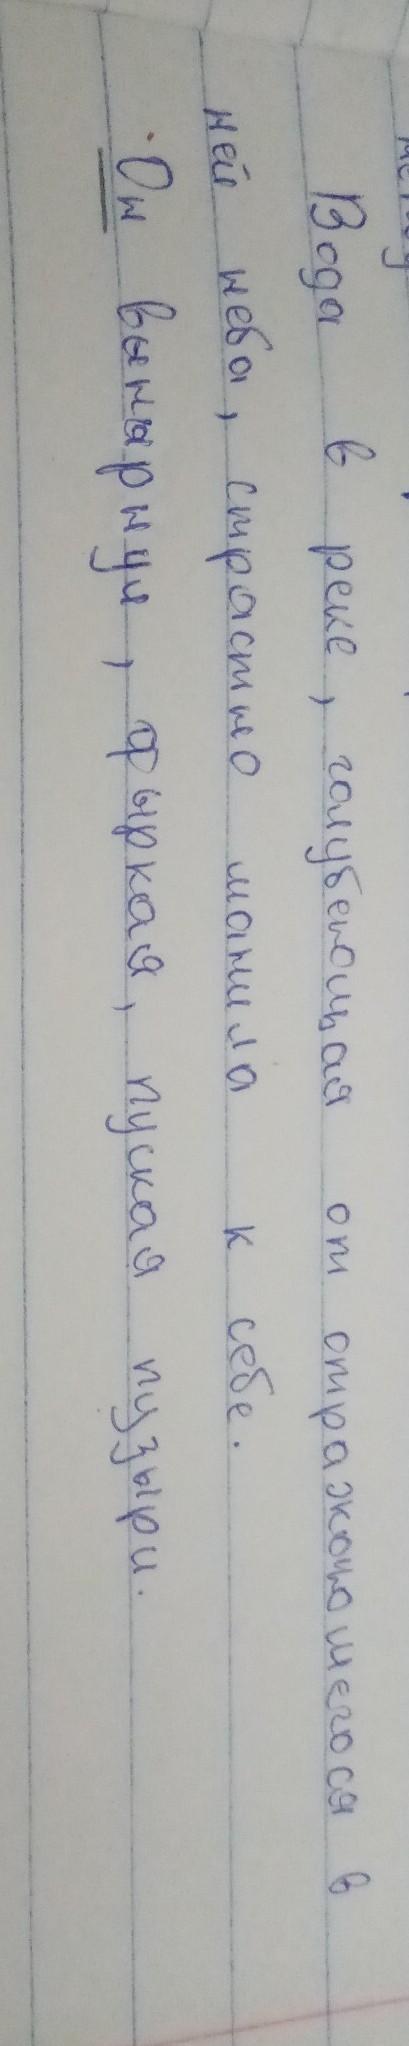 Вода в реке, голубеющая от отражающегося в
ней неба, страстно манила к себе.
Он вынырнул, фыркая, пуская пузыри.